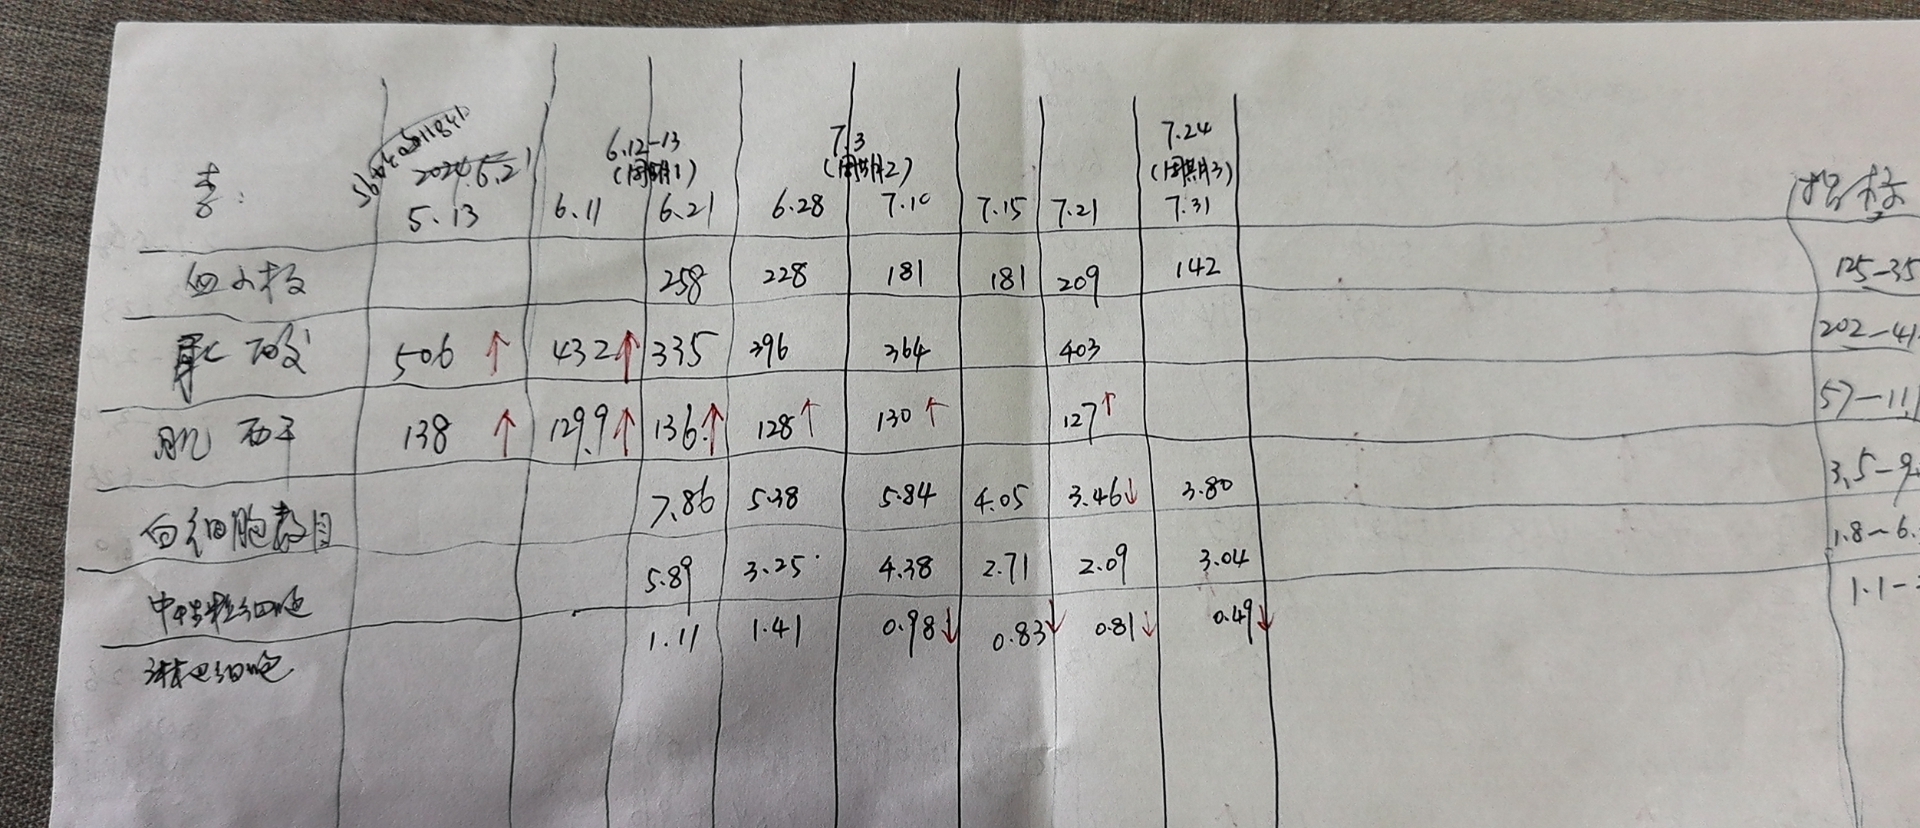 6.12-13 7.3 7.24
(周期1) (周期2) (周期3)
李: 2024.6.21 指标
5.13 6.11 6.21 6.28 7.10 7.15 7.21 7.31
血小板 258 228 181 181 209 142 125-35
尿酸 506↑ 432↑ 335 396 364 403 202-41
肌酐 138↑ 129.9↑ 136↑ 128↑ 130↑ 127↑ 57-11
白细胞数目 7.86 5.38 5.84 4.05 3.46↓ 3.80 3.5-9.
中性粒细胞 5.89 3.25 4.38 2.71 2.09 3.04 1.8-6.
淋巴细胞 1.11 1.41 0.98↓ 0.83↓ 0.81↓ 0.49↓ 1.1-